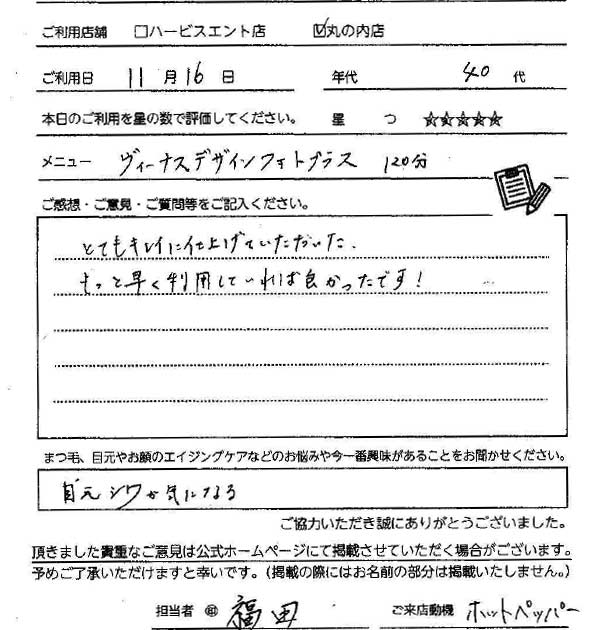 ご利用店舗 □ハービスエント店 ☑丸の内店
ご利用日 11月16日 年代 40代
本日のご利用を星の数で評価してください。 星 つ ☆☆☆☆☆
メニュー ヴィーナスデザインフォトプラス 120分
ご感想・ご意見・ご質問等をご記入ください。
とてもキレイに仕上げていただいた.
もっと早く利用していれば良かったです!
まつ毛、目元やお顔のエイジングケアなどのお悩みや今一番興味があることをお聞かせください。
目元シワが気になる
ご協力いただき誠にありがとうございました。
頂きました貴重なご意見は公式ホームページにて掲載させていただく場合がございます。
予めご了承いただけますと幸いです。(掲載の際にはお名前の部分は掲載いたしません。)
担当者 ㊞ 福田 ご来店動機 ホットペッパー